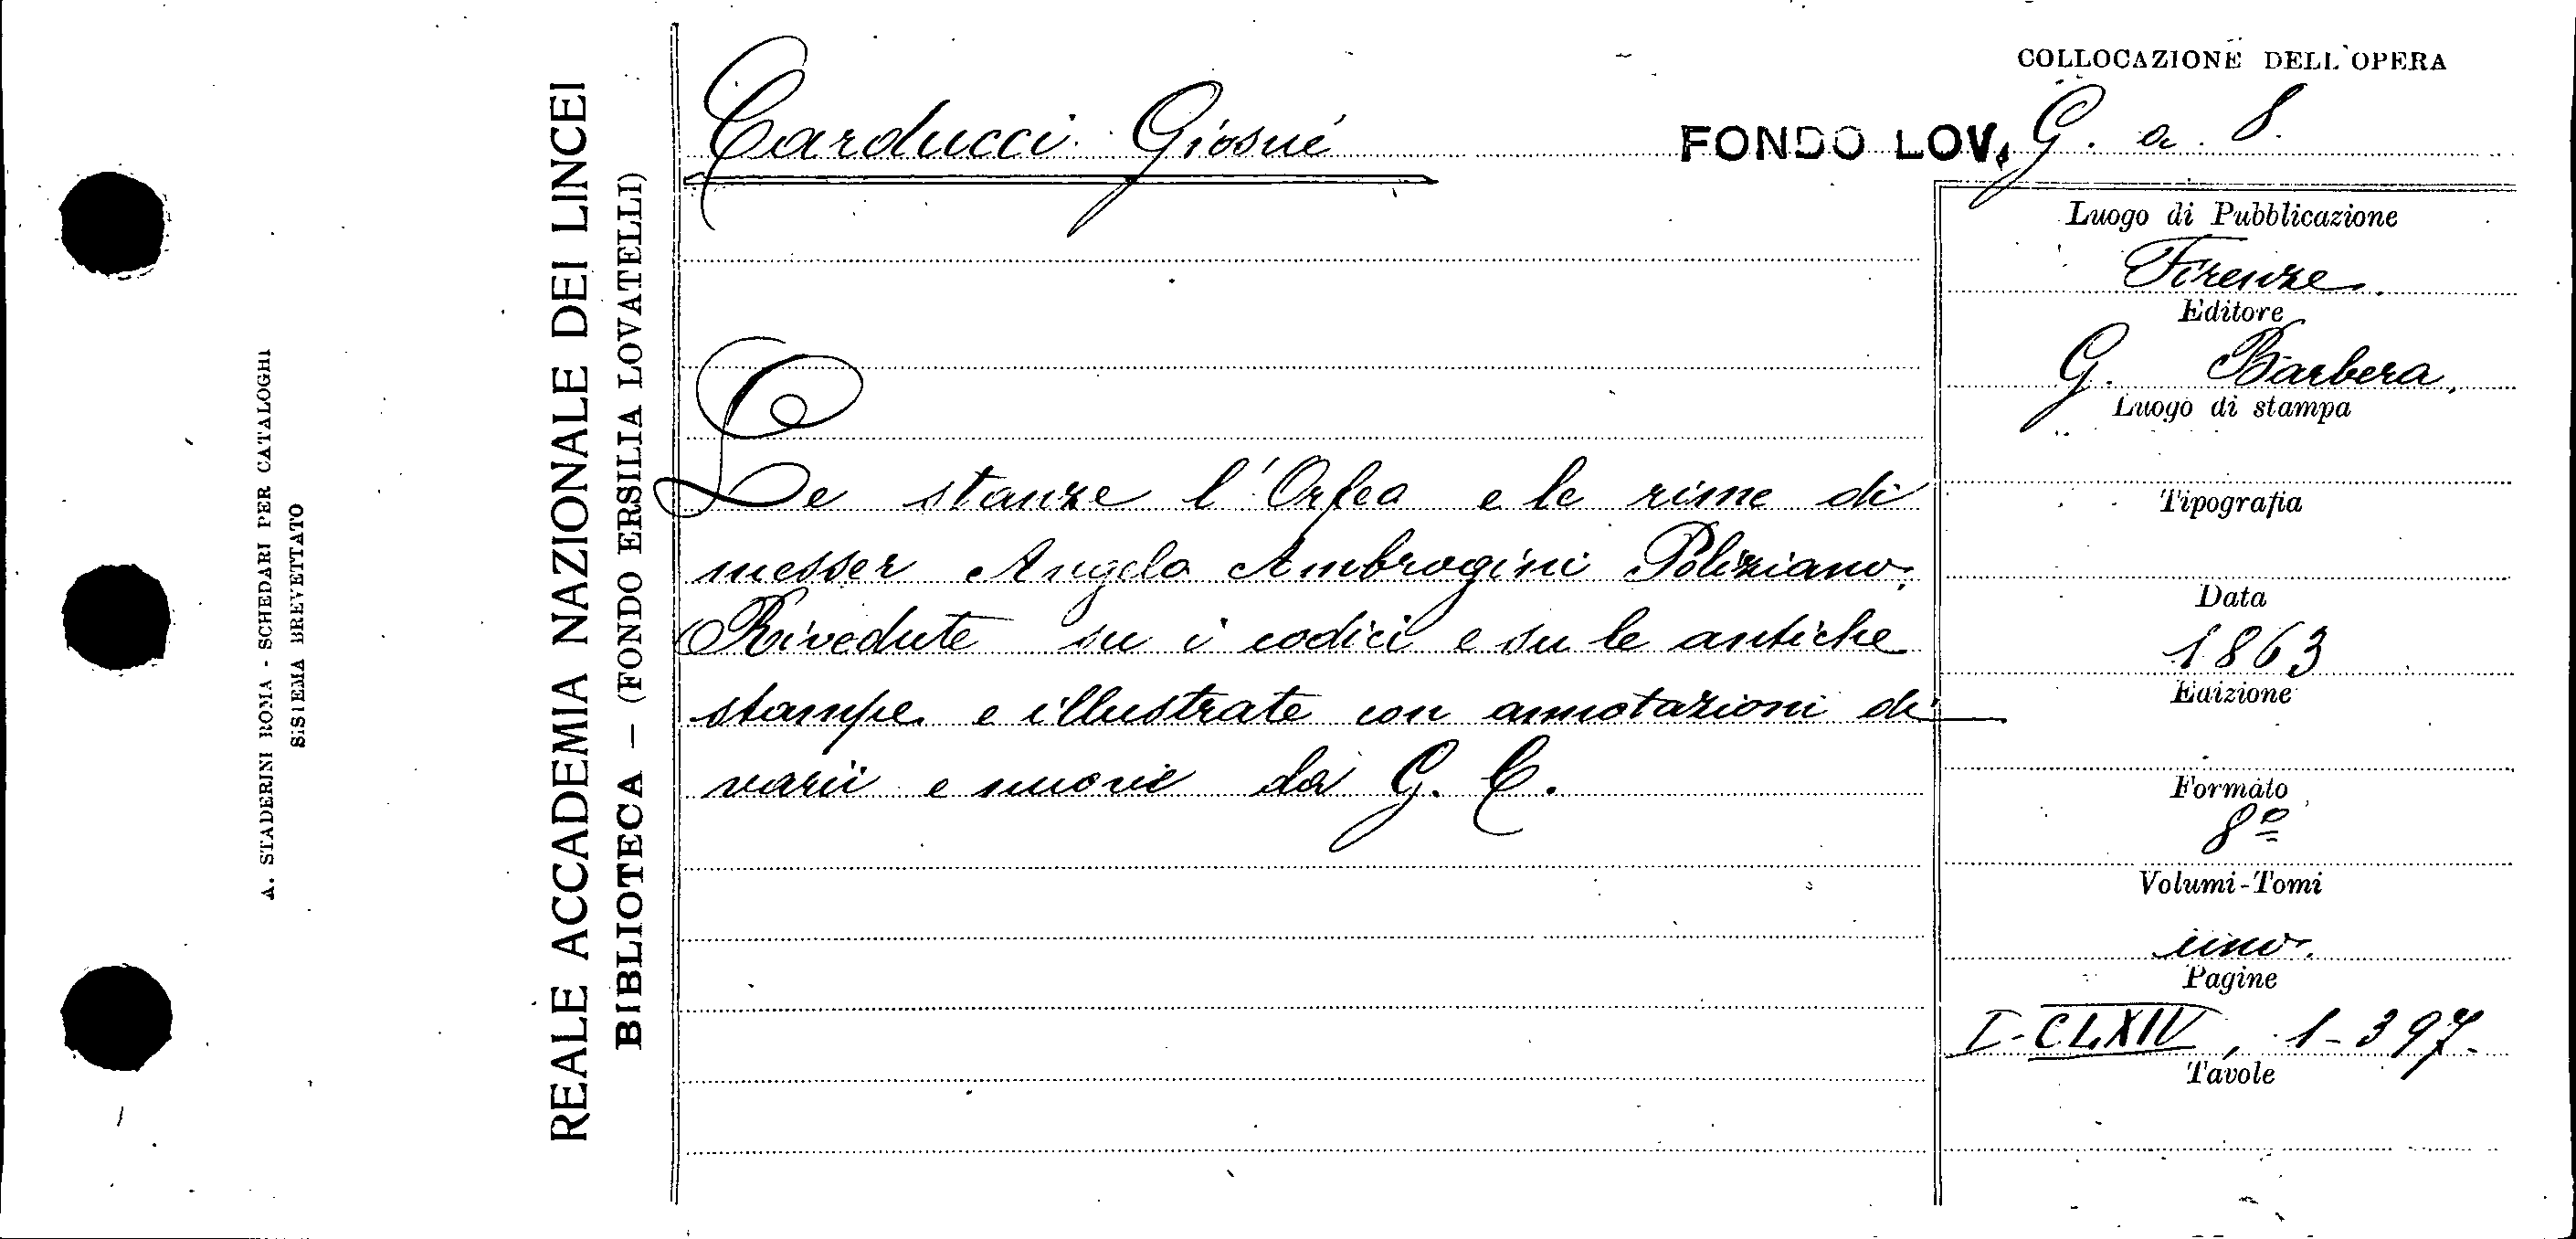 A. STADERINI ROMA - SCHEDARI PER CATALOGHI
SISTEMA BREVETTATO
REALE ACCADEMIA NAZIONALE DEI LINCEI
BIBLIOTECA — (FONDO ERSILIA LOVATELLI)
Carducci Giosué
COLLOCAZIONE DELL'OPERA
FONDO LOV. G. a. 8.
Le stanze l'Orfeo e le rime di
messer Angelo Ambrogini Poliziano.
Rivedute su i codici e su le antiche
stampe e illustrate con annotazioni di
varii e nuove da G. C.
Luogo di Pubblicazione
Firenze.
Editore
G. Barbera.
Luogo di stampa
Tipografia
Data
1863
Edizione
Formato
8º
Volumi-Tomi
uno.
Pagine
I-CLXIV, 1-397.
Tavole